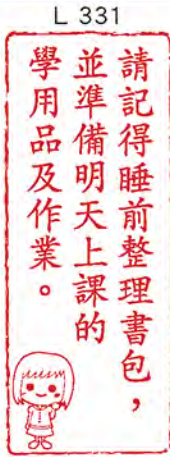 L 331
請記得睡前整理書包，
並準備明天上課的
學用品及作業。